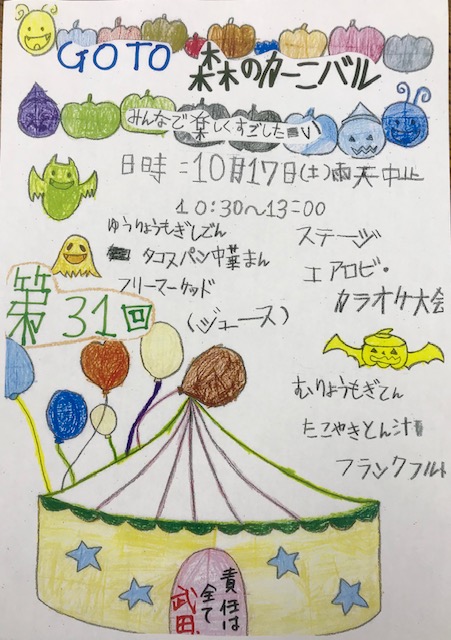 GO TO 森のカーニバル
みんなで楽しくすごしたい
日時:10月17日(土)雨天中止
10:30〜13:00
ゆうりょうもぎしでん
タコスパン中華まん
フリーマーケッド
(ジュース)
ステージ
エアロビ・
カラオケ大会
第31回
むりょうもぎてん
たこやきとん汁
フランクフルト
責任は
全て
武田、